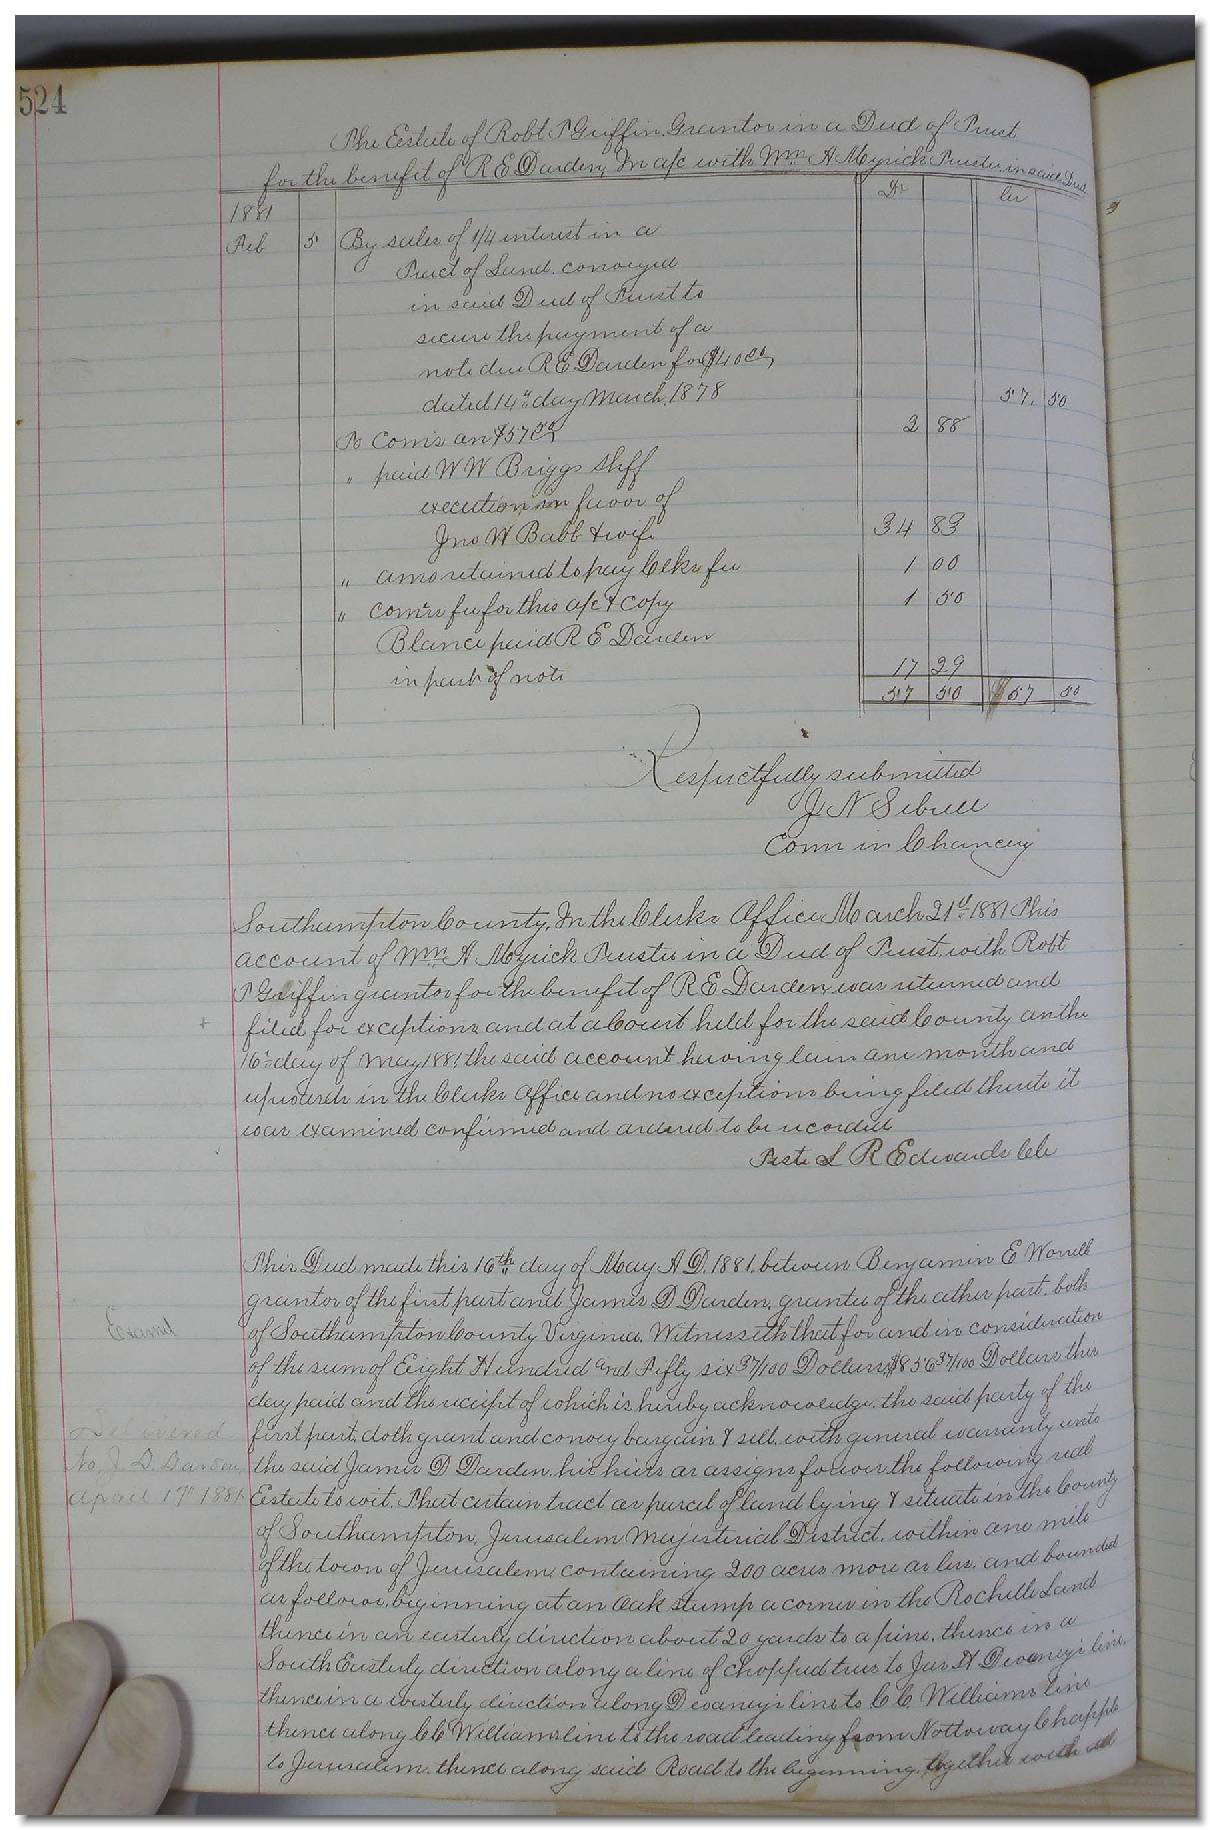 524
The Estate of Robt P Griffin, Grantor in a Deed of Trust
for the benefit of R E Darden, In a/c with Wm A Myrick Trustee in said Deed
Dr Cr
1881
Feb 5 By sales of 1/4 interest in a
Tract of Land conveyed
in said Deed of Trust to
secure the payment of a
note due R E Darden for
dated 14th day March, 1878 57. 50
To Coms on 2 88
" paid W W Briggs Shff
execution in favor of
Jno W Babb & wife 34 83
" amo retained to pay Clks fee 1 00
" comrs fee for this a/c & copy 1 50
Blance paid R E Darden
in part of note 17 29
57 50 57 50
Respectfully submitted
J N Sebrell
Comr in Chancery
Southampton County, In the Clerks Office March 21st 1881 This
account of Wm A Myrick Trustee in a Deed of Trust with Robt
P Griffin grantor for the benefit of R E Darden was returned and
filed for exceptions and at a Court held for the said County on the
16th day of May 1881 the said account having lain one month and
upwards in the Clerks Office and no exceptions being filed thereto it
was examined confirmed and ordered to be recorded
Teste L R Edwards Clk
This Deed made this 16th day of May A D. 1881. between Benjamin E Worrell
grantor of the first part and James D Darden, grantee of the other part. both
Examd
of Southampton County Virginia. Witnesseth that for and in consideration
of the sum of Eight Hundred and Fifty six 37/100 Dollars $856 37/100 Dollars this
day paid and the receipt of which is hereby acknowledge. the said party of the
Delivered
first part, doth grant and convey bargain & sell, with general warranty unto
to J. D. Darden
the said James D Darden, his heirs or assigns forever the following real
April 17th 1881
Estate to wit. That certain tract or parcel of land lying & situate in the County
of Southampton, Jerusalem Majisterial District. within one mile
of the town of Jerusalem containing 200 acres more or less. and bounded
as follows, beginning at an Oak stump a corner in the Rochelle Land
thence in an easterly direction about 20 yards to a pine. thence in a
South Easterly direction along a line of chopped trees to Jas H Devaney's line,
thence in a westerly direction along Devaney's line to C C Williams line
thence along C C Williams line to the road leading from Nottoway Chapple
to Jerusalem. thence along said Road to the beginning, together with all